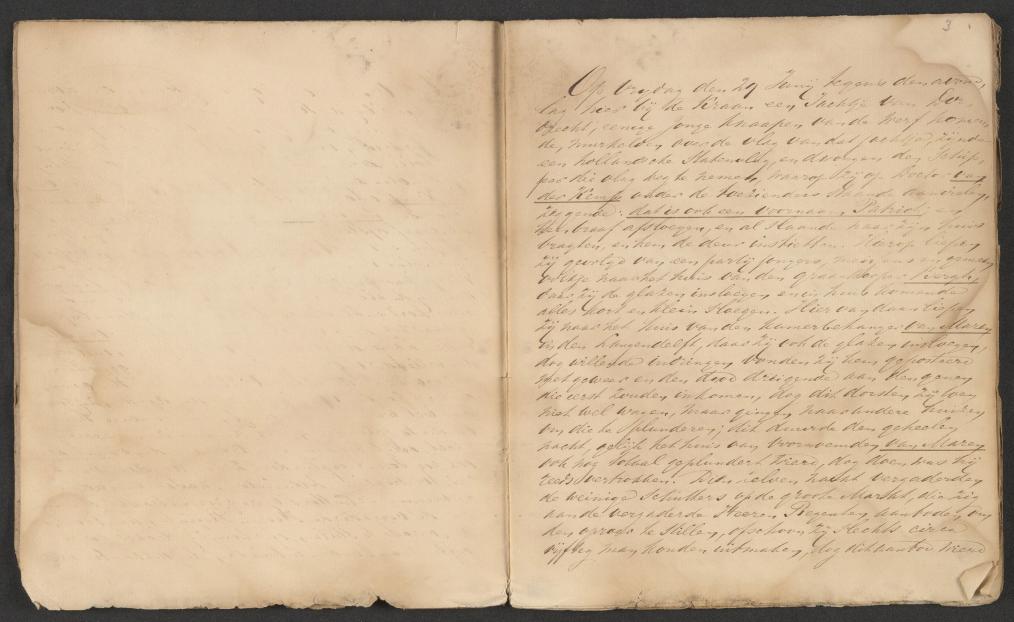 3
Op vrydag den 29 Juny tegens den avond,
lag hier bij de Kraan een Jachtje van Dor-
drecht, eenige jonge knaapen van de werf komen
de, over de vlag van dat jachtje, zijnde
een hollandsche Statenvlag, en dwongen den Schip-
per die vlag weg te nemen, waarop zij op Doctor van
der Kemp onder de toeziende Staande aanvielen,
zeggende: dat is ook een voornaam Patriot, en
hem braaf afsloegen, en al Slaande naar zijn huis
bragten, en hem de deur instieten. Hierop liepen
zij gevolgd van een partij jongens, en gemeen
volkje naar het huis van den graankooper
daar zij de glazen insloegen en in huis komende
alles kort en klein Sloegen. Hier van daan liepen
zij naar het huis van den kamerbehanger van Maren
in den Langendelft, daar zij ook de glazen insloegen,
dog willende indringen vonden zij hem geposteerd
met geweer en den dood dreigende aan dengenen
die eerst zouden inkomen, dog dit dorsten zij toen
niet wel wagen, maar gingen naar andere huizen
om die te plunderen; dit duurde den geheelen
nacht, gelijk het huis van voornoemden van Maren
ook nog totaal geplundert wierd, dog toen was hij
reeds vertrokken. Dien zelven nacht vergaderden
de weinige Schutters op de groote Markt, die zig
aan de vergaderde Heeren Regenten aanboden om
den oproer te Stillen, ofschoon zij Slechts circa
vijftig man konden uitmaken, dog dit aanbod wierd